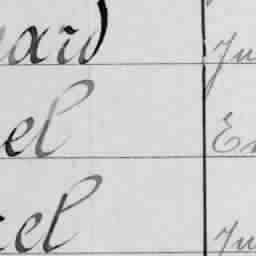 ard Ju
el En
el Ju